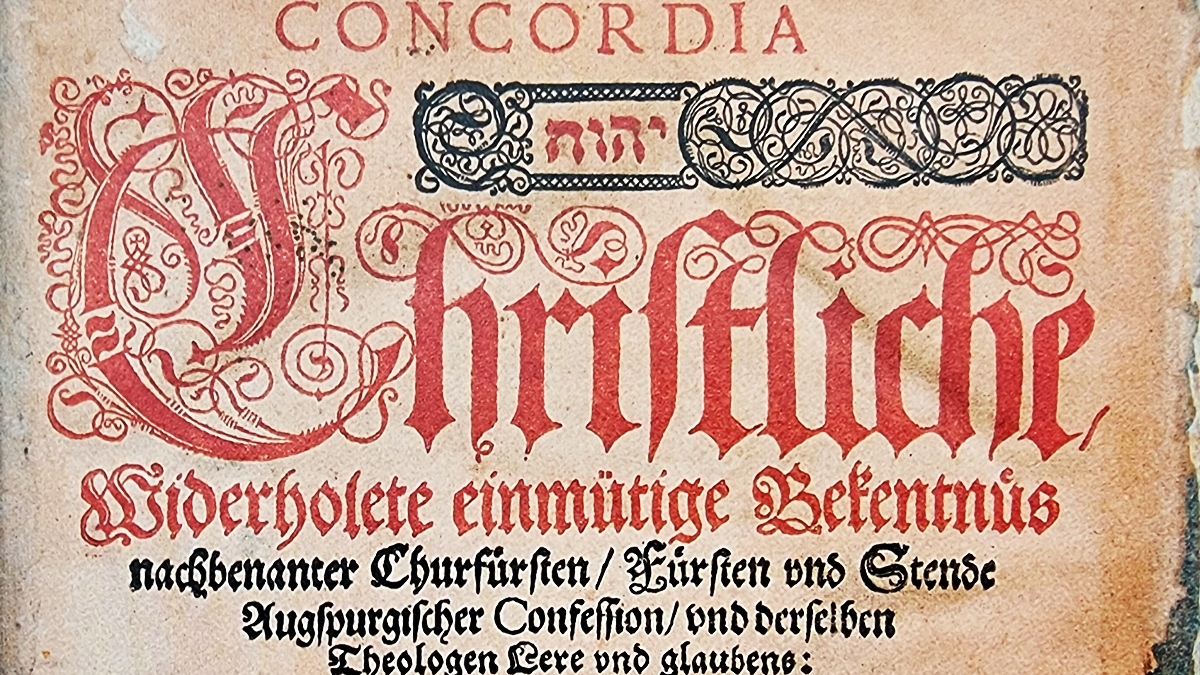 CONCORDIA
יהוה
Chriſtliche/
Widerholete einmütige Bekentnüs
nachbenanter Churfürſten/ Fürſten vnd Stende
Augſpurgiſcher Confeſſion/ vnd derſelben
Theologen Lere vnd glaubens: